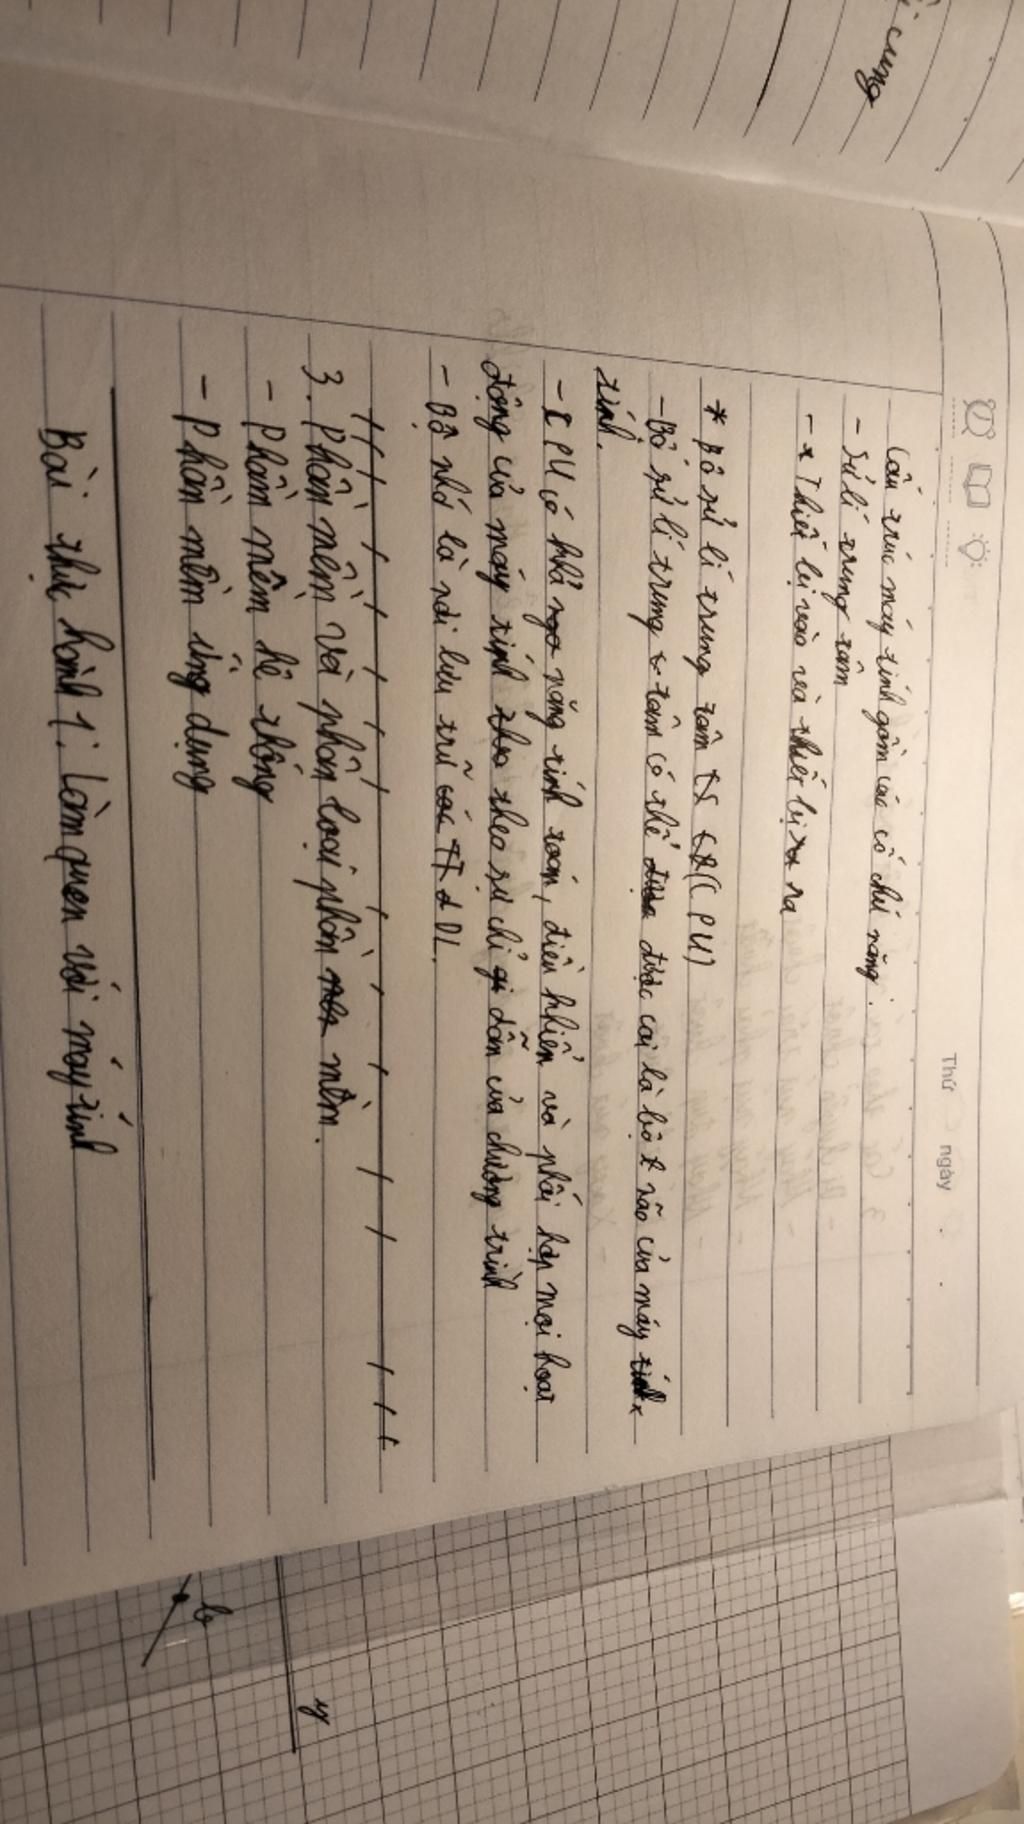 cứng
Thứ ngày
Cấu trúc máy tính gồm các có chứ năng:
- Sử lí trung tâm
- Thiết bị vào và thiết bị ra
* Bộ sử lí trung tâm (CPU)
- Bộ sử lí trung tâm có thể được coi là bộ não của máy
tính.
- CPU có khả năng tính toán, điều khiển và phối hợp mọi hoạt
động của máy tính theo sự chỉ dẫn của chương trình
- Bộ nhớ là nơi lưu trữ các TT & DL.
3. Phần mềm và phân loại phần mềm.
- Phần mềm hệ thống
- Phần mềm ứng dụng
Bài thực hành 1: Làm quen với máy tính
b
y